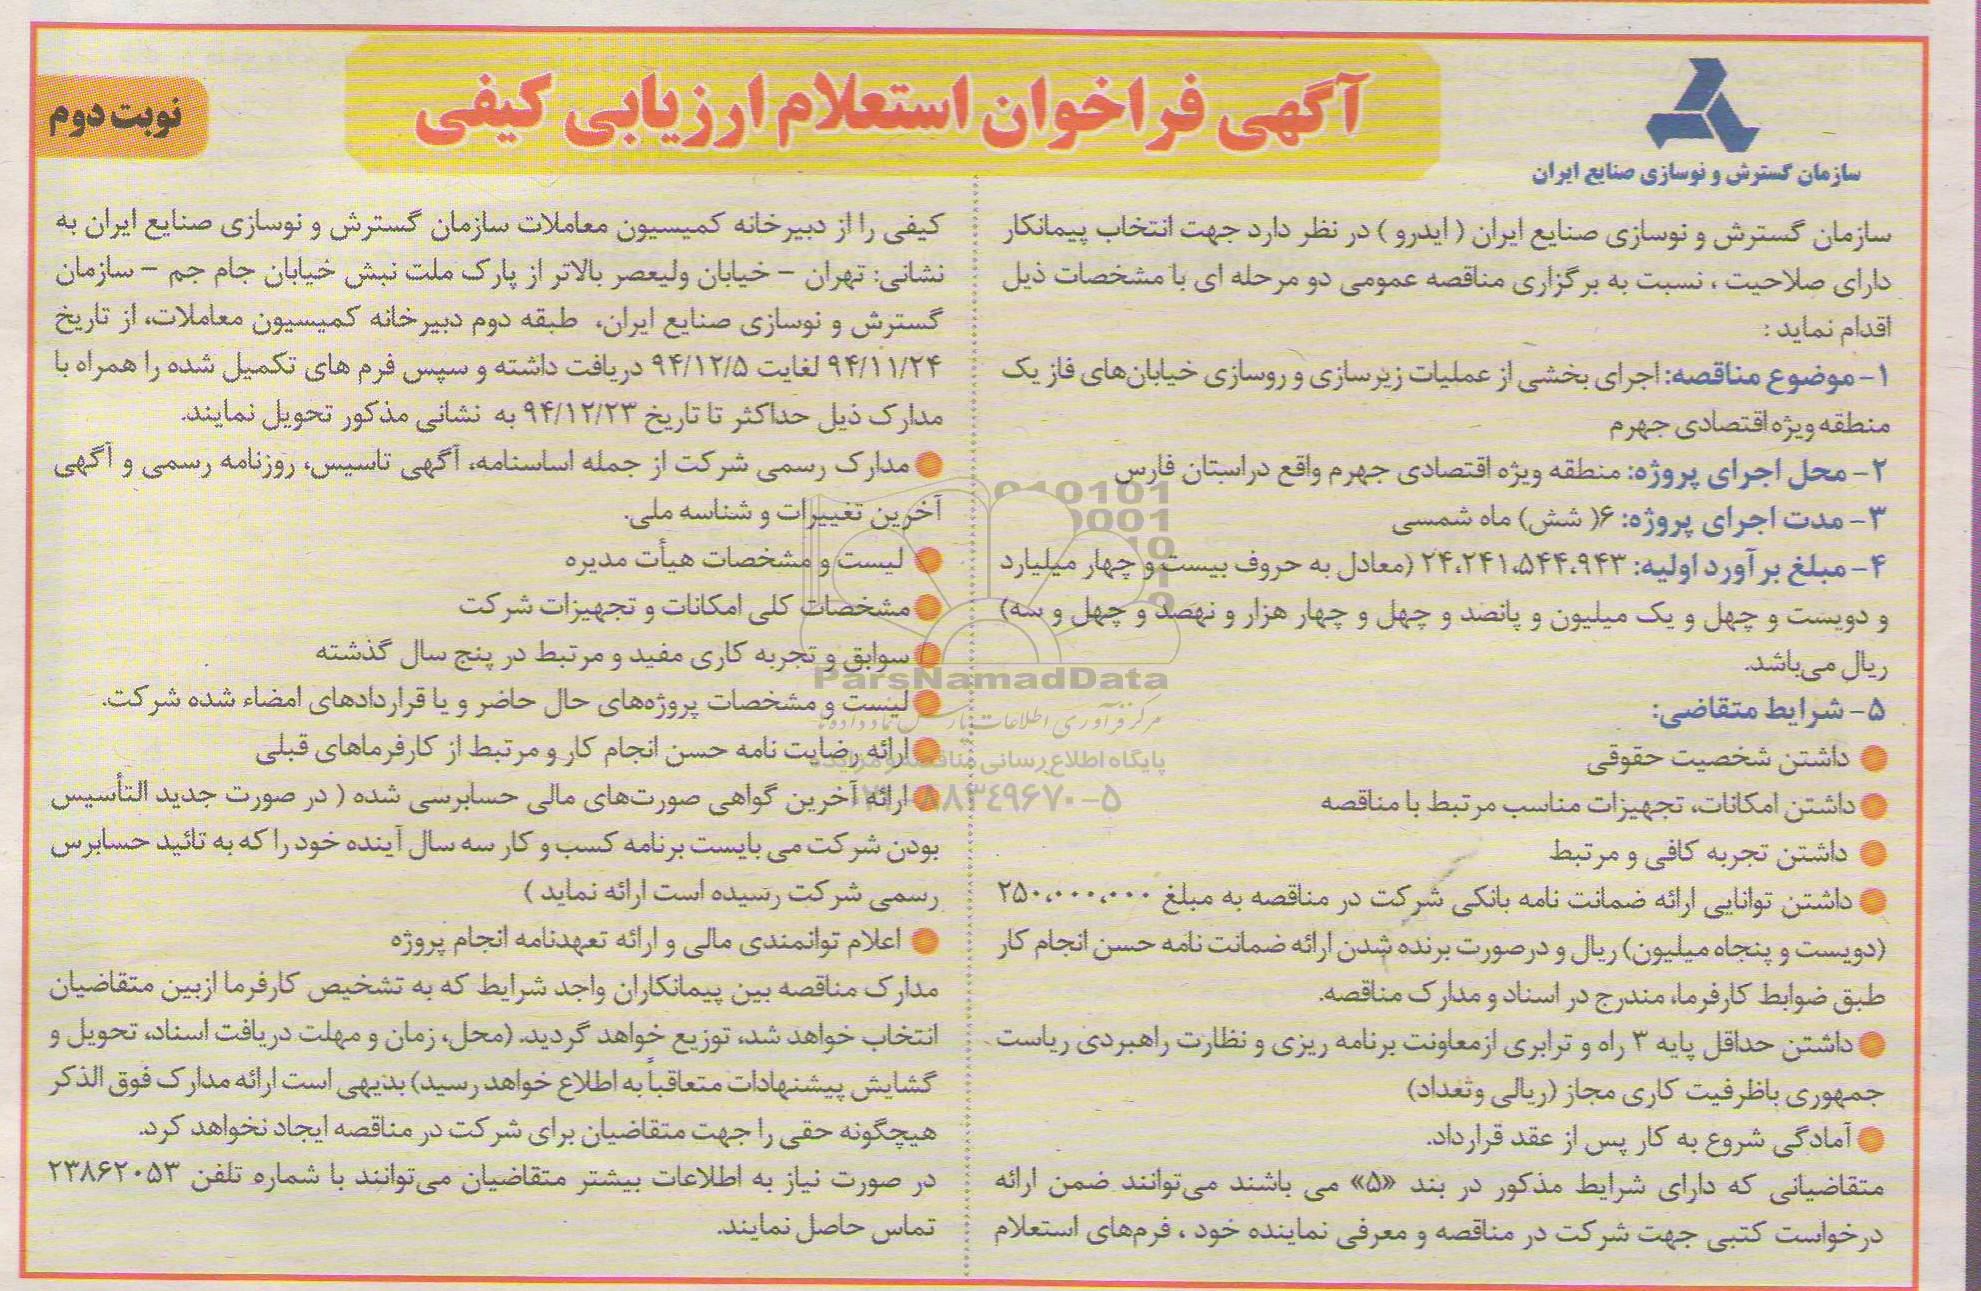 آگهی فراخوان استعلام ارزیابی کیفی
نوبت دوم
سازمان گسترش و نوسازی صنایع ایران
سازمان گسترش و نوسازی صنایع ایران ( ایدرو ) در نظر دارد جهت انتخاب پیمانکار
دارای صلاحیت ، نسبت به برگزاری مناقصه عمومی دو مرحله ای با مشخصات ذیل
اقدام نماید :
۱- موضوع مناقصه: اجرای بخشی از عملیات زیرسازی و روسازی خیابان‌های فاز یک
منطقه ویژه اقتصادی جهرم
۲- محل اجرای پروژه: منطقه ویژه اقتصادی جهرم واقع دراستان فارس
۳- مدت اجرای پروژه: ۶( شش) ماه شمسی
۴- مبلغ برآورد اولیه: ۲۴،۲۴۱،۵۴۴،۹۴۳ (معادل به حروف بیست و چهار میلیارد
و دویست و چهل و یک میلیون و پانصد و چهل و چهار هزار و نهصد و چهل و سه)
ریال می‌باشد.
۵- شرایط متقاضی:
داشتن شخصیت حقوقی
داشتن امکانات، تجهیزات مناسب مرتبط با مناقصه
داشتن تجربه کافی و مرتبط
داشتن توانایی ارائه ضمانت نامه بانکی شرکت در مناقصه به مبلغ ۲۵۰،۰۰۰،۰۰۰
(دویست و پنجاه میلیون) ریال و درصورت برنده شدن ارائه ضمانت نامه حسن انجام کار
طبق ضوابط کارفرما، مندرج در اسناد و مدارک مناقصه.
داشتن حداقل پایه ۳ راه و ترابری ازمعاونت برنامه ریزی و نظارت راهبردی ریاست
جمهوری باظرفیت کاری مجاز (ریالی وتعداد)
آمادگی شروع به کار پس از عقد قرارداد.
متقاضیانی که دارای شرایط مذکور در بند «۵» می باشند می‌توانند ضمن ارائه
درخواست کتبی جهت شرکت در مناقصه و معرفی نماینده خود ، فرم‌های استعلام
کیفی را از دبیرخانه کمیسیون معاملات سازمان گسترش و نوسازی صنایع ایران به
نشانی: تهران - خیابان ولیعصر بالاتر از پارک ملت نبش خیابان جام جم - سازمان
گسترش و نوسازی صنایع ایران، طبقه دوم دبیرخانه کمیسیون معاملات، از تاریخ
۹۴/۱۱/۲۴ لغایت ۹۴/۱۲/۵ دریافت داشته و سپس فرم های تکمیل شده را همراه با
مدارک ذیل حداکثر تا تاریخ ۹۴/۱۲/۲۳ به نشانی مذکور تحویل نمایند.
مدارک رسمی شرکت از جمله اساسنامه، آگهی تاسیس، روزنامه رسمی و آگهی
آخرین تغییرات و شناسه ملی.
لیست و مشخصات هیأت مدیره
مشخصات کلی امکانات و تجهیزات شرکت
سوابق و تجربه کاری مفید و مرتبط در پنج سال گذشته
لیست و مشخصات پروژه‌های حال حاضر و یا قراردادهای امضاء شده شرکت.
ارائه رضایت نامه حسن انجام کار و مرتبط از کارفرماهای قبلی
ارائه آخرین گواهی صورت‌های مالی حسابرسی شده ( در صورت جدید التأسیس
بودن شرکت می بایست برنامه کسب و کار سه سال آینده خود را که به تائید حسابرس
رسمی شرکت رسیده است ارائه نماید )
اعلام توانمندی مالی و ارائه تعهدنامه انجام پروژه
مدارک مناقصه بین پیمانکاران واجد شرایط که به تشخیص کارفرما ازبین متقاضیان
انتخاب خواهد شد، توزیع خواهد گردید. (محل، زمان و مهلت دریافت اسناد، تحویل و
گشایش پیشنهادات متعاقباً به اطلاع خواهد رسید) بدیهی است ارائه مدارک فوق الذکر
هیچگونه حقی را جهت متقاضیان برای شرکت در مناقصه ایجاد نخواهد کرد.
در صورت نیاز به اطلاعات بیشتر متقاضیان می‌توانند با شماره تلفن ۲۳۸۶۲۰۵۳
تماس حاصل نمایند.
ParsNamadData
مرکز فرآوری اطلاعات پارس نماد داده ها
پایگاه اطلاع رسانی مناقصه و مزایده
۸۸۳۴۹۶۷۰-۵